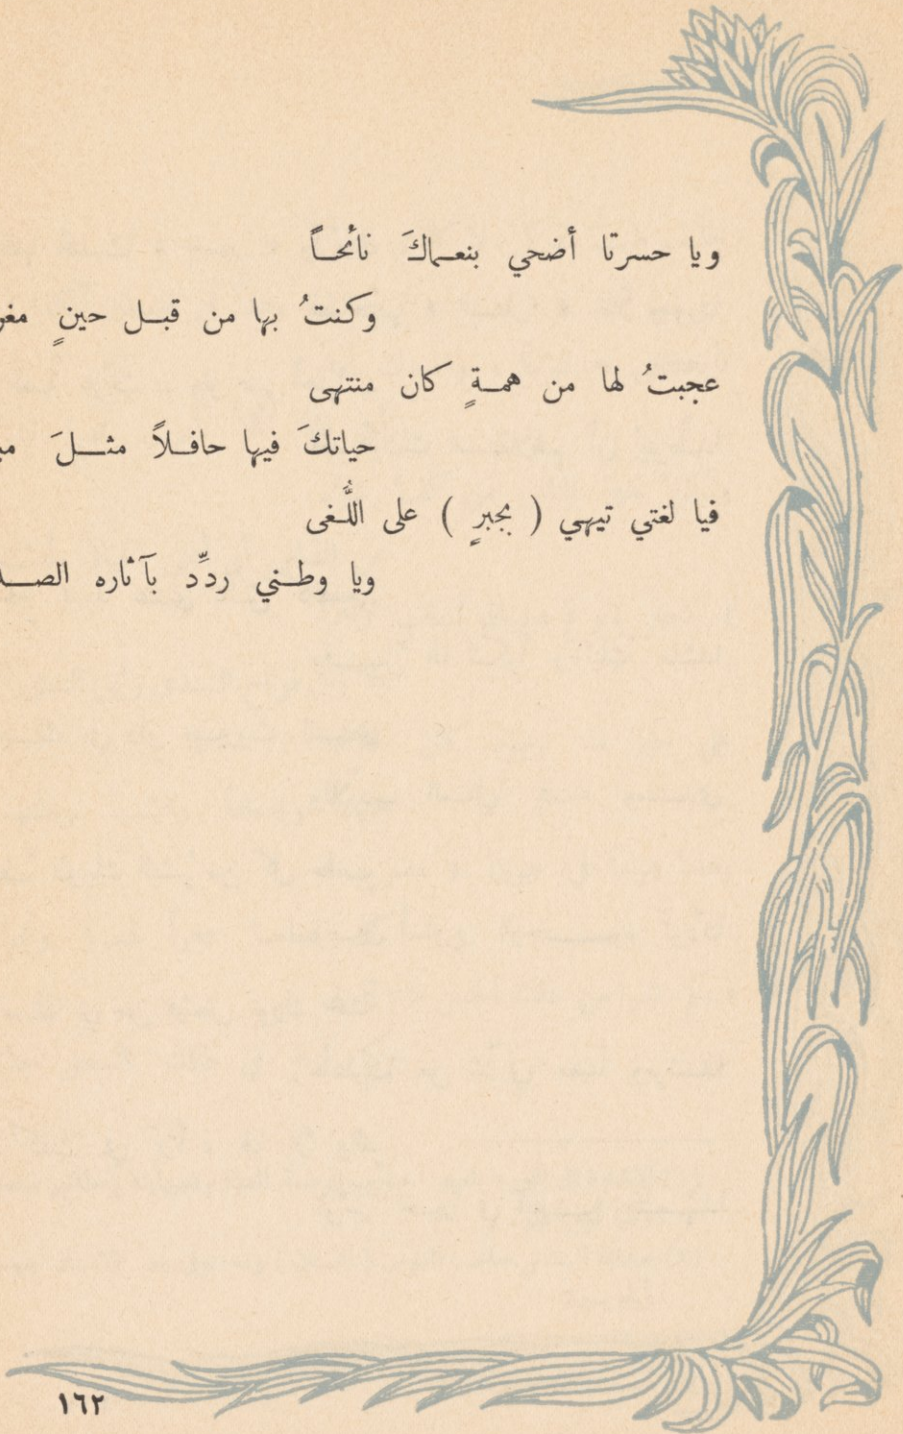 ويا حسرتا أضحي بنعماكَ نائحاً
وكنتُ بها من قبل حينٍ
عجبتُ لها من همةٍ كان منتهى
حياتكَ فيها حافلاً مثلَ
فيا لغتي تيهي ( بجبرٍ ) على اللُّغى
ويا وطني ردِّد بآثاره
١٦٢